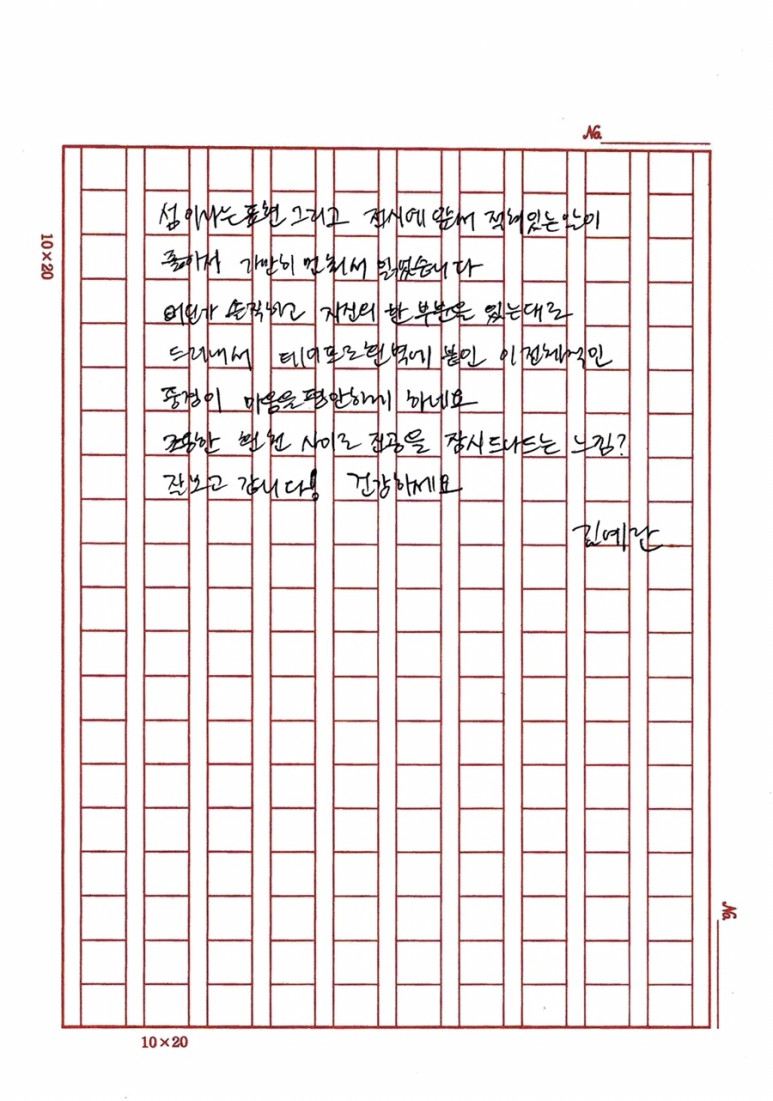 No.
10×20
섬이라는 표현 그리고 전시에 앞서 적혀있는 말이
좋아서 가만히 멈춰서 읽었습니다
어딘가 솔직하고 자신의 한 부분을 있는대로
드러내서 테이프로 흰벽에 붙인 이 전체적인
풍경이 마음을 평안하게 하네요
조용한 흰천 사이로 전공을 잠시 드나드는 느낌?
잘보고 갑니다! 건강하세요
김예란
No.
10×20